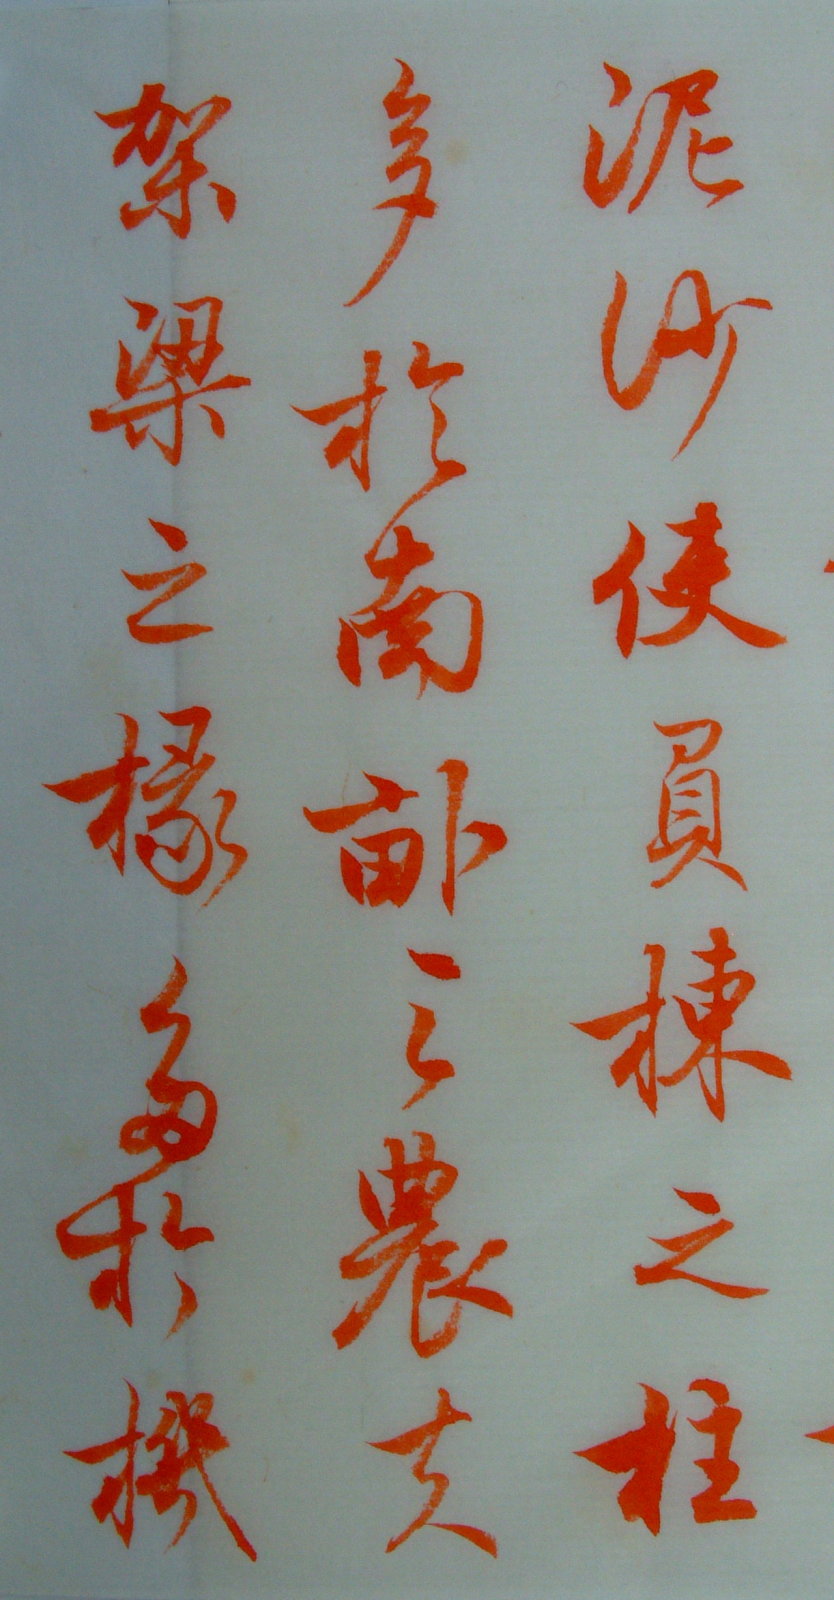 泥沙使負棟之柱
多於南畝之農夫
架梁之椽多於機